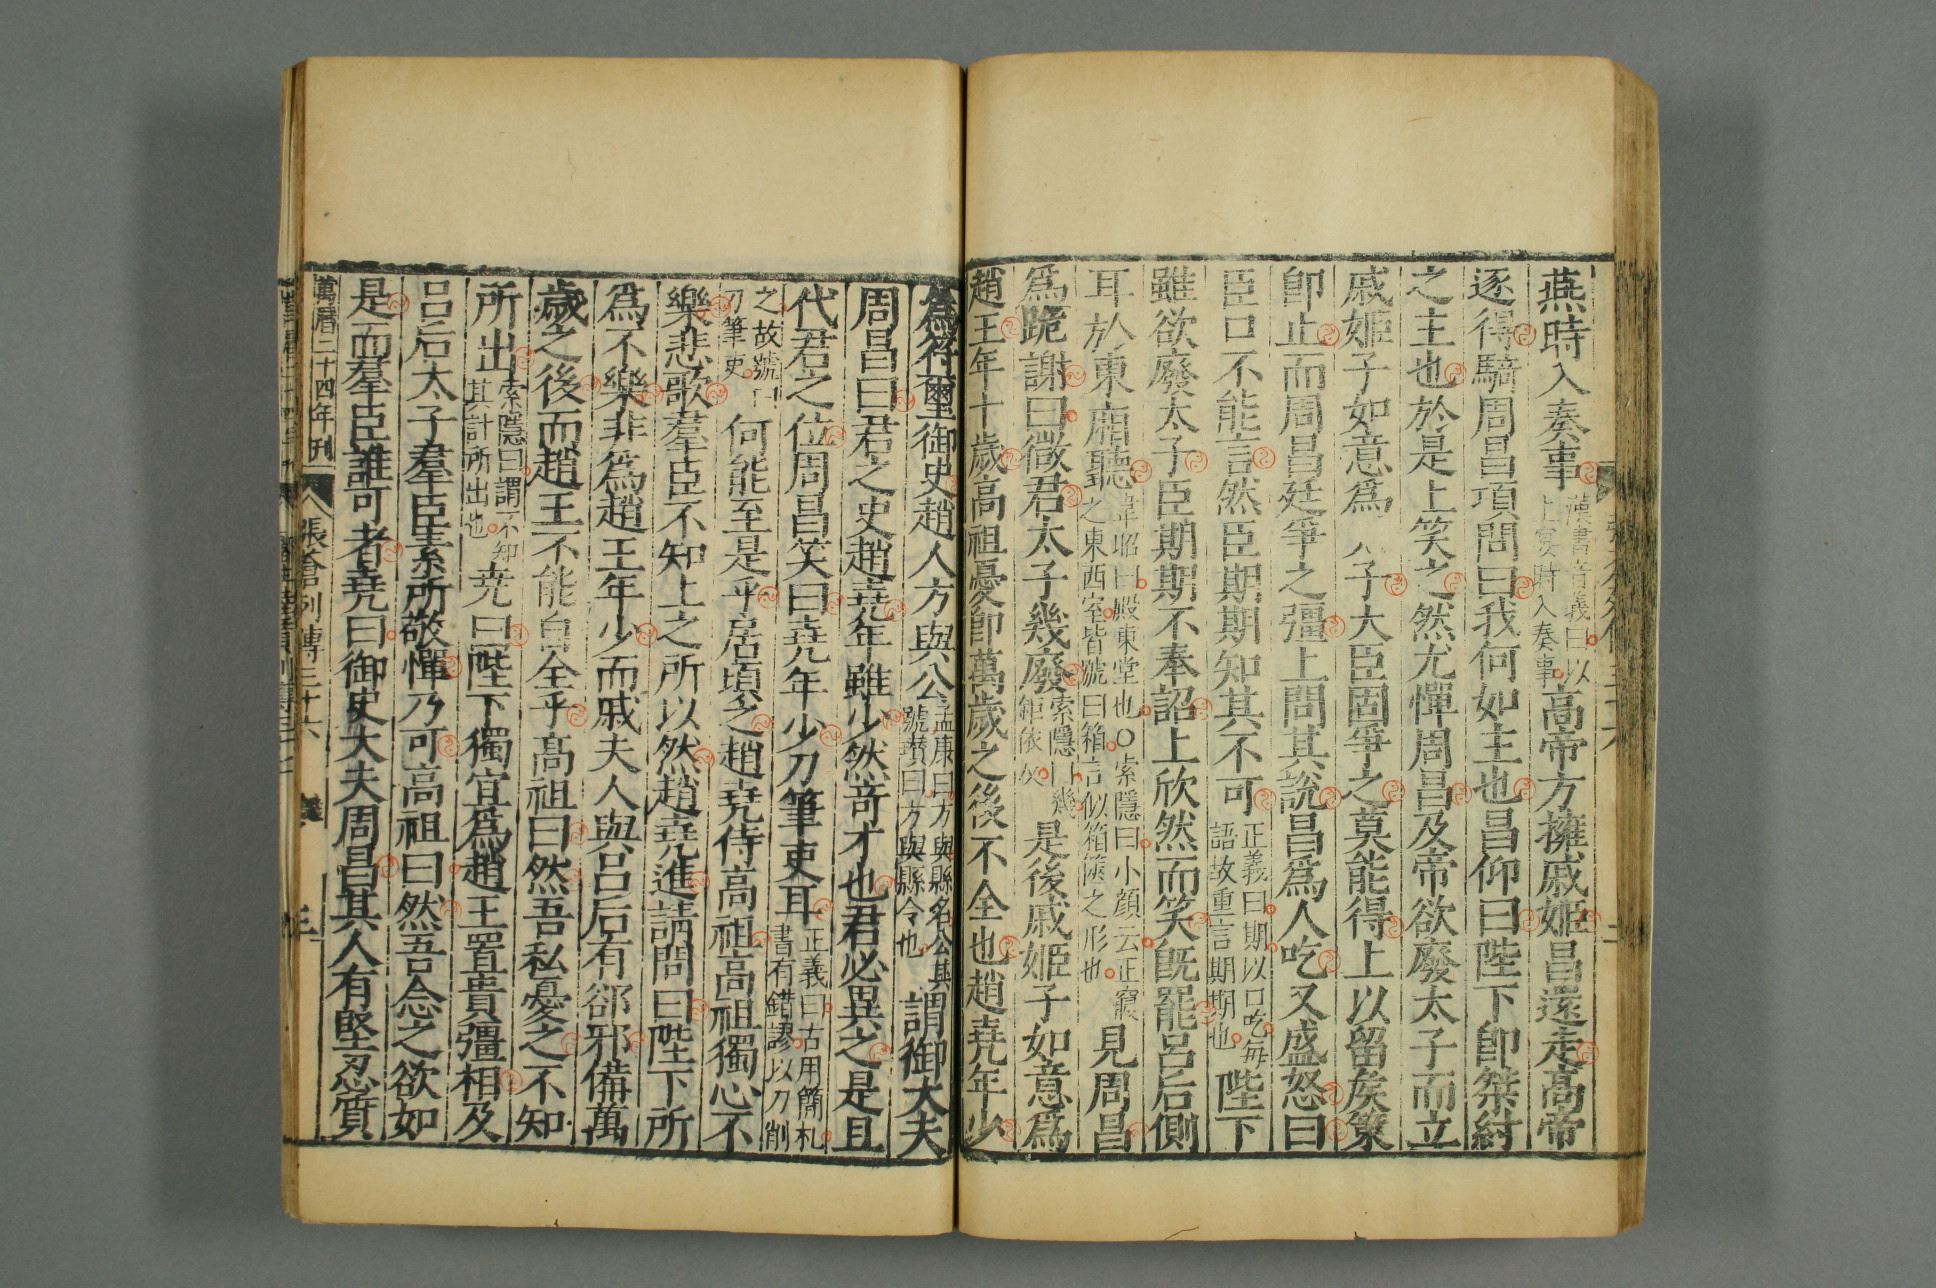 燕時入奏事漢書音義曰以上宴時入奏事高帝方擁戚姬昌還走高帝
逐得騎周昌項問曰我何如主也昌仰曰陛下卽桀紂
之主也於是上笑之然尤憚周昌及帝欲廢太子而立
戚姬子如意爲 子大臣固爭之莫能得上以留矦策
卽止而周昌廷爭之彊上問其說昌爲人吃又盛怒曰
臣口不能言然臣期期知其不可正義曰期以口吃每語故重言期期也陛下
雖欲廢太子臣期期不奉詔上欣然而笑旣罷呂后側
耳於東廂聽韋昭曰殿東堂也○索隱曰小顏云正寢之東西室皆號曰箱言似箱篋之形也見周昌
爲跪謝曰微君太子幾廢索隱曰幾鉅依反是後戚姬子如意爲
趙王年十歲高祖憂卽萬歲之後不全也趙堯年少
爲符璽御史趙人方與公孟康曰方與縣名公其號瓚曰方與縣令也謂御史大夫
周昌曰君之史趙堯年雖少然竒才也君必異之是且
代君之位周昌笑曰堯年少刀筆吏耳正義曰古用簡札書有錯謬以刀削
之故號曰刀筆吏何能至是乎居頃之趙堯侍高祖高祖獨心不
樂悲歌羣臣不知上之所以然趙堯進請問曰陛下所
爲不樂非爲趙王年少而戚夫人與呂后有郤邪備萬
歲之後而趙王不能自全乎高祖曰然吾私憂之不知
所出索隱曰謂不知其計所出也堯曰陛下獨宜爲趙王置貴彊相及
呂后太子羣臣素所敬憚乃可高祖曰然吾念之欲如
是而羣臣誰可者堯曰御史大夫周昌其人有堅忍質
萬曆二十四年刊
張蒼列傳三十六
三